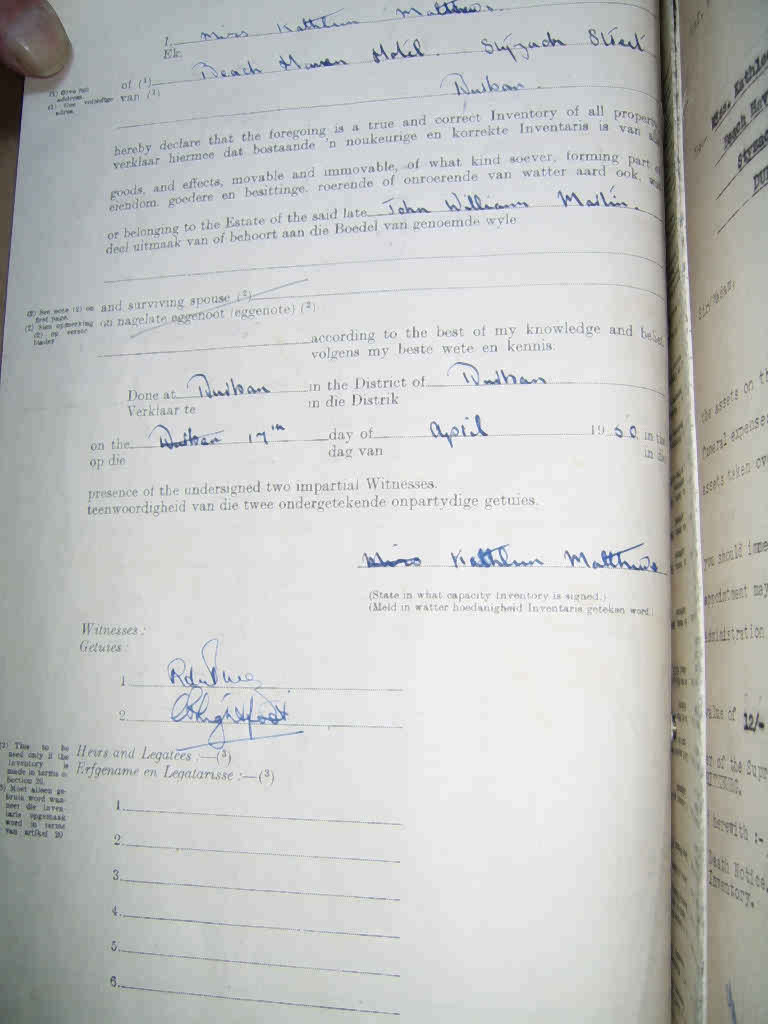 I, Miss Kathleen Matthews.
Ek,
of (1) Beach Haven Hotel. Street
van (1)
(1) Give full
address.
(1) volledige
adres.
Durban.
hereby declare that the foregoing is a true and correct Inventory of all property
verklaar hiermee dat bostaande 'n noukeurige en korrekte Inventaris is van
goods, and effects, movable and immovable, of what kind soever, forming part
eiendom, goedere en besittinge, roerende of onroerende van watter aard ook,
or belonging to the Estate of the said late John William Martin.
deel uitmaak van of behoort aan die Boedel van genoemde wyle
(2) See note (2) on
first page.
(2) Sien opmerking
(2) op eerste
and surviving spouse (2)
en nagelate eggenoot (eggenote) (2)
according to the best of my knowledge and belief.
volgens my beste wete en kennis.
Done at Durban in the District of Durban
Verklaar te in die Distrik
on the Durban 17th day of April 1950 in the
op die dag van in die
presence of the undersigned two impartial Witnesses.
teenwoordigheid van die twee ondergetekende onpartydige getuies.
Miss Kathleen Matthews
(State in what capacity Inventory is signed.)
(Meld in watter hoedanigheid Inventaris geteken word.)
Witnesses :
Getuies :
1
2
(3) This to be
used only if the
inventory is
made in terms of
Section 20.
(3) Moet alleen ge-
bruik word wan-
neer die inven-
taris opgemaak
word in terme
van artikel 20
Heirs and Legatees :—(3)
Erfgename en Legatarisse :—(3)
1.
2.
3.
4.
5.
6.
Beach
Sir/Madam,
the assets on
funeral expenses
assets taken
you should
appointment may
administration
value of 12/-
of the
herewith :-
Death Notice.
Inventory.